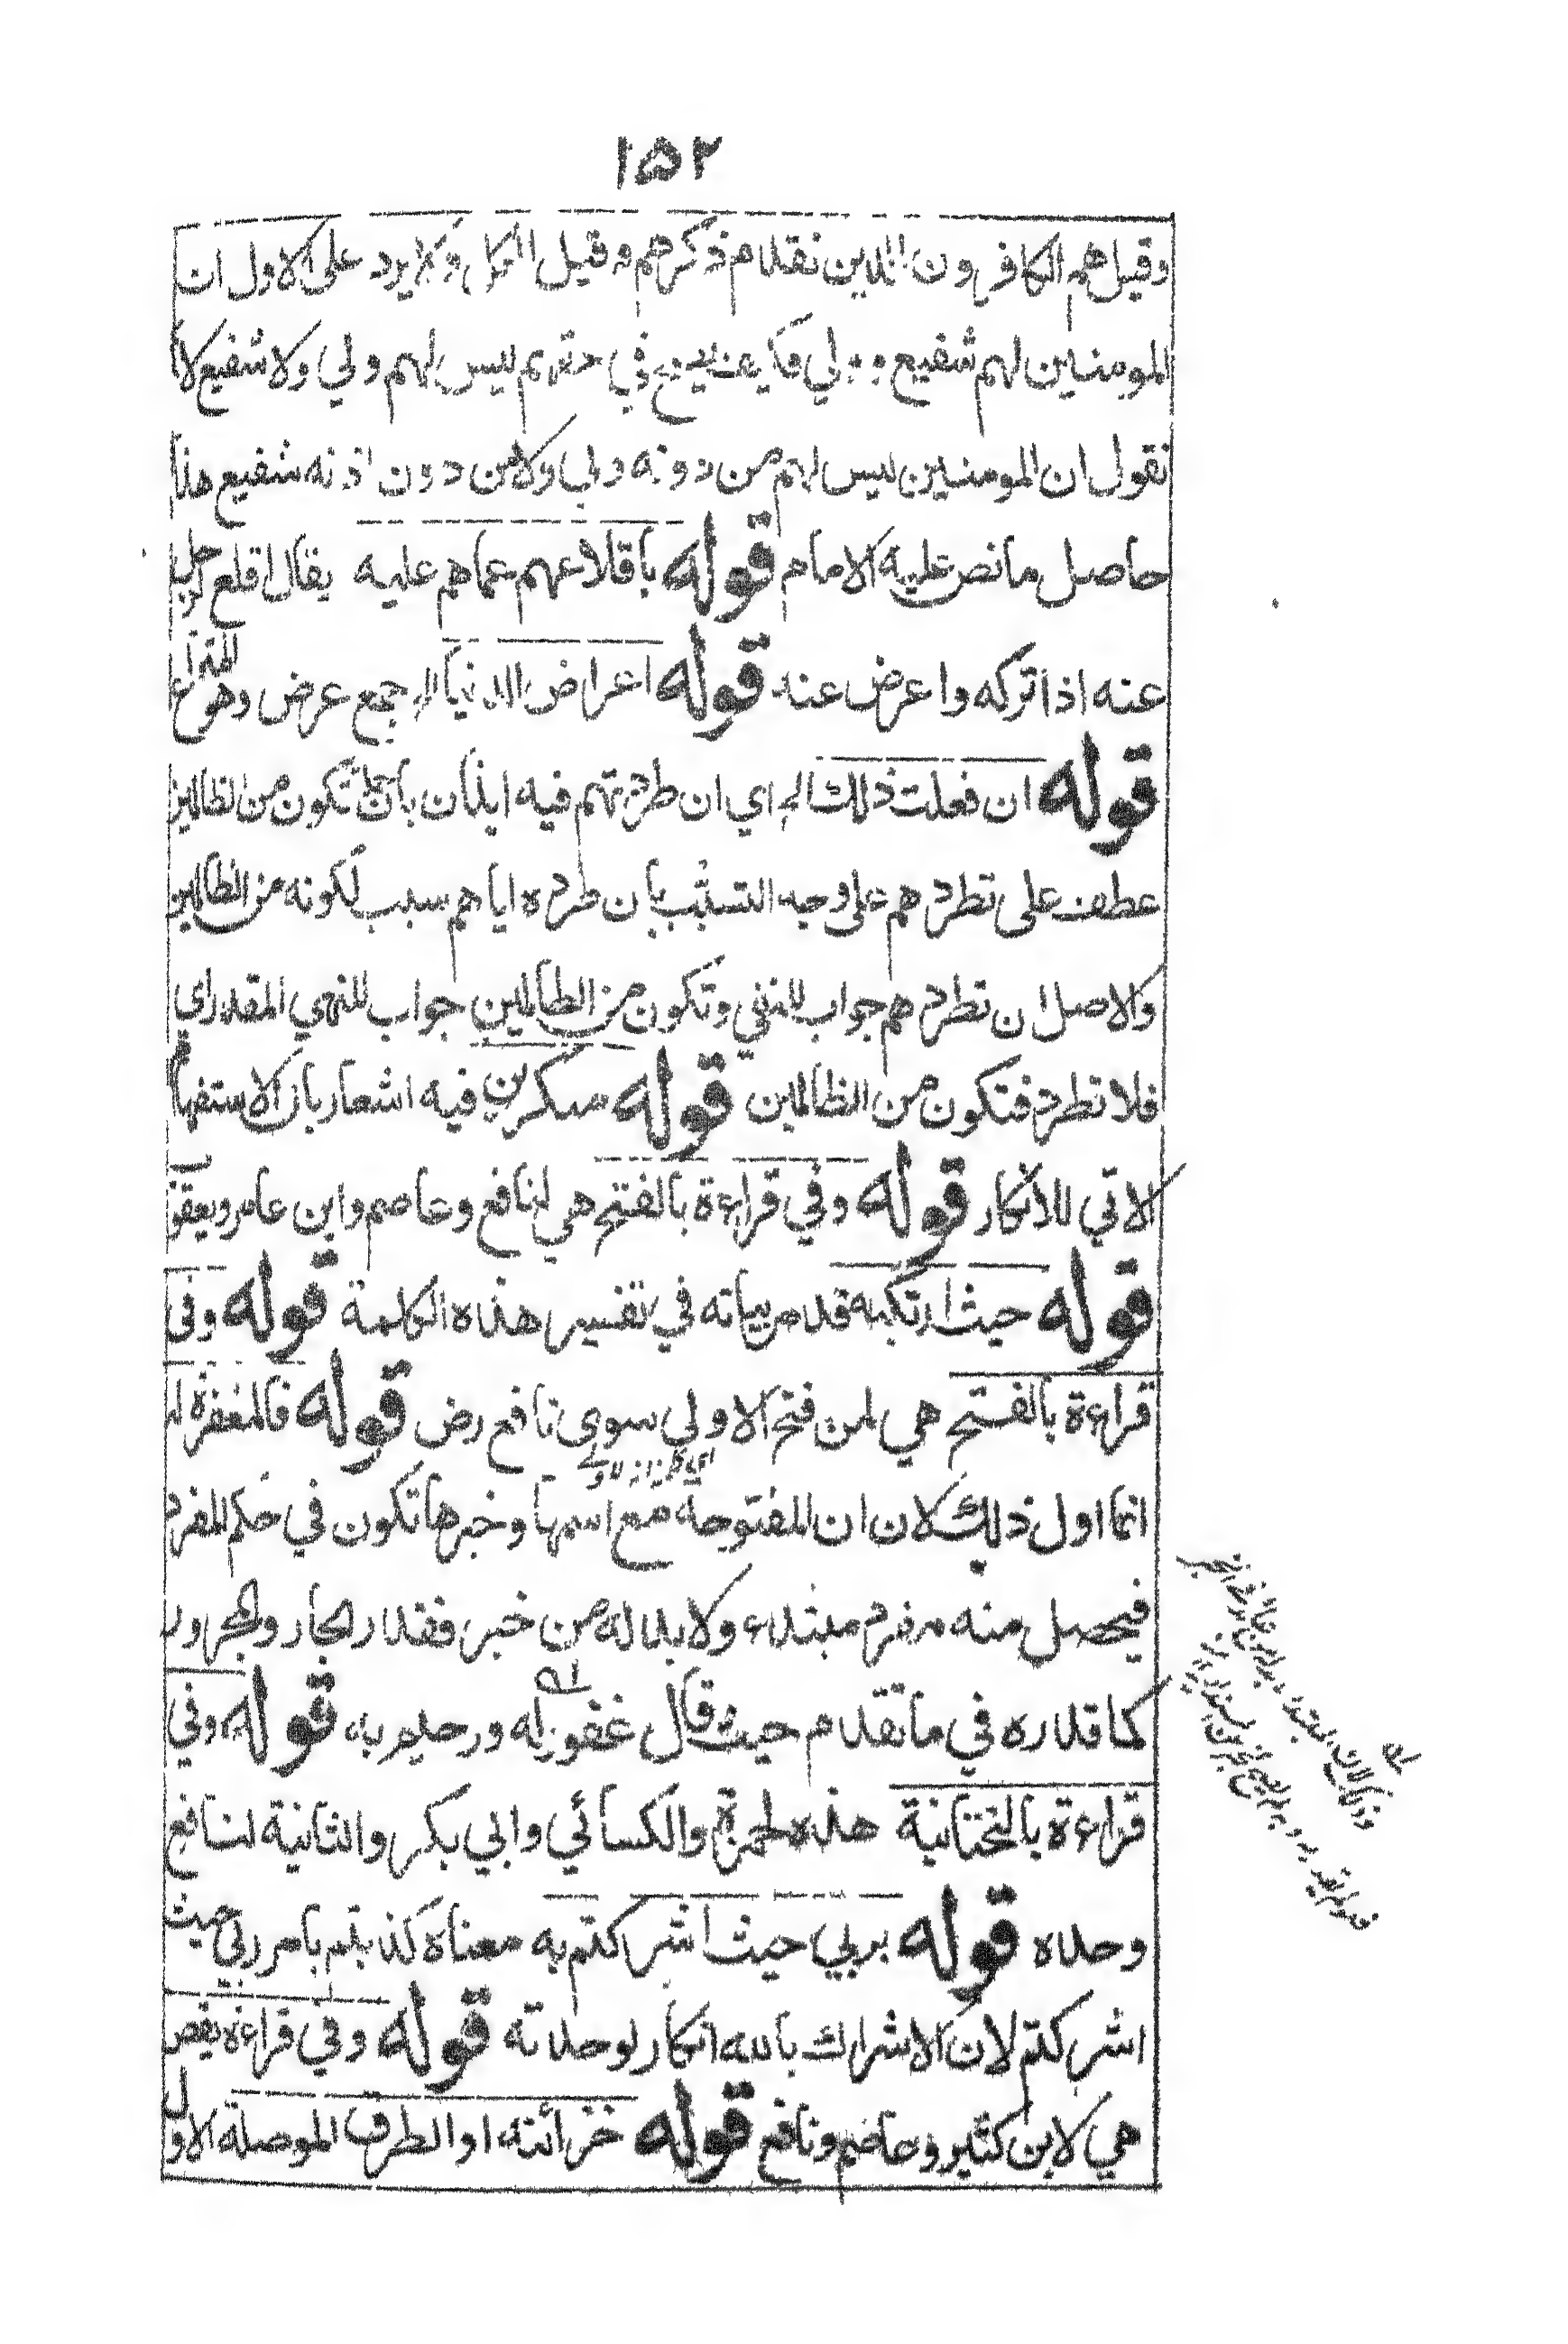 ١٥٢
وقيل هم الكافرون الذين تقدم ذكرهم وقيل الكل ولا يرد على الاول ان
المومنين لهم شفيع وولي فكيف يصح في حقهم ليس لهم ولي ولا شفيع لانا
نقول ان المومنين ليس لهم من دونه ولي ولا من دون اذنه شفيع هذا
حاصل ما نص عليه الامام قوله باقلاعهم عما هم عليه يقال اقلع الرجل
عنه اذا تركه واعرض عنه قوله اعراض الدنيا الخ جمع عرض وهو المتاع
قوله ان فعلت ذلك الخ اي ان طردتهم فيه ايذان بان جملة تكون من الظالمين
عطف على تطردهم على وجه التسبب بان طرده اياهم سبب لكونه من الظالمين
والاصل ان تطردهم جواب للنفي وتكون من الظالمين جواب للنهي المقدر اي
فلا تطرد فتكون من الظالمين قوله منكرين فيه اشعار بان الاستفهام
الاتي للانكار قوله وفي قراءة بالفتح هي لنافع وعاصم وابن عامر ويعقوب
قوله حيث ارتكبه قد مر بيانه في تفسير هذه الكلمة قوله وفي
قراءة بالفتح هي لمن فتح الاولى سوى نافع رض قوله فالمغفرة له
انما اول ذلك لان ان المفتوحة مع اسمها وخبرها تكون في حكم المفرد
فيحصل منه مفرد مبتداء ولا بد له من خبر فقدر الجار والمجرور
كما قدره في ما تقدم حيث قال غفور له ورحيم به قوله وفي
قراءة بالتحتانية هذه لحمزة والكسائي وابي بكر والثانية لنافع
وحده قوله بربي حيث اشركتم به معناه كذبتم بامر ربي حيث
اشركتم لان الاشراك بالله انكار لوحدته قوله وفي قراءة يقص
هي لابن كثير وعاصم ونافع قوله خزائنه او الطرق الموصلة الاول